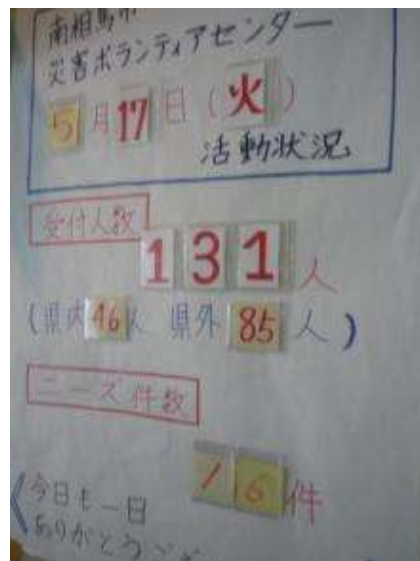 南相馬市
災害ボランティアセンター
5月17日(火)
活動状況
受付人数
131人
(県内46人 県外85人)
ニーズ件数
16件
今日も一日
ありがとうござ